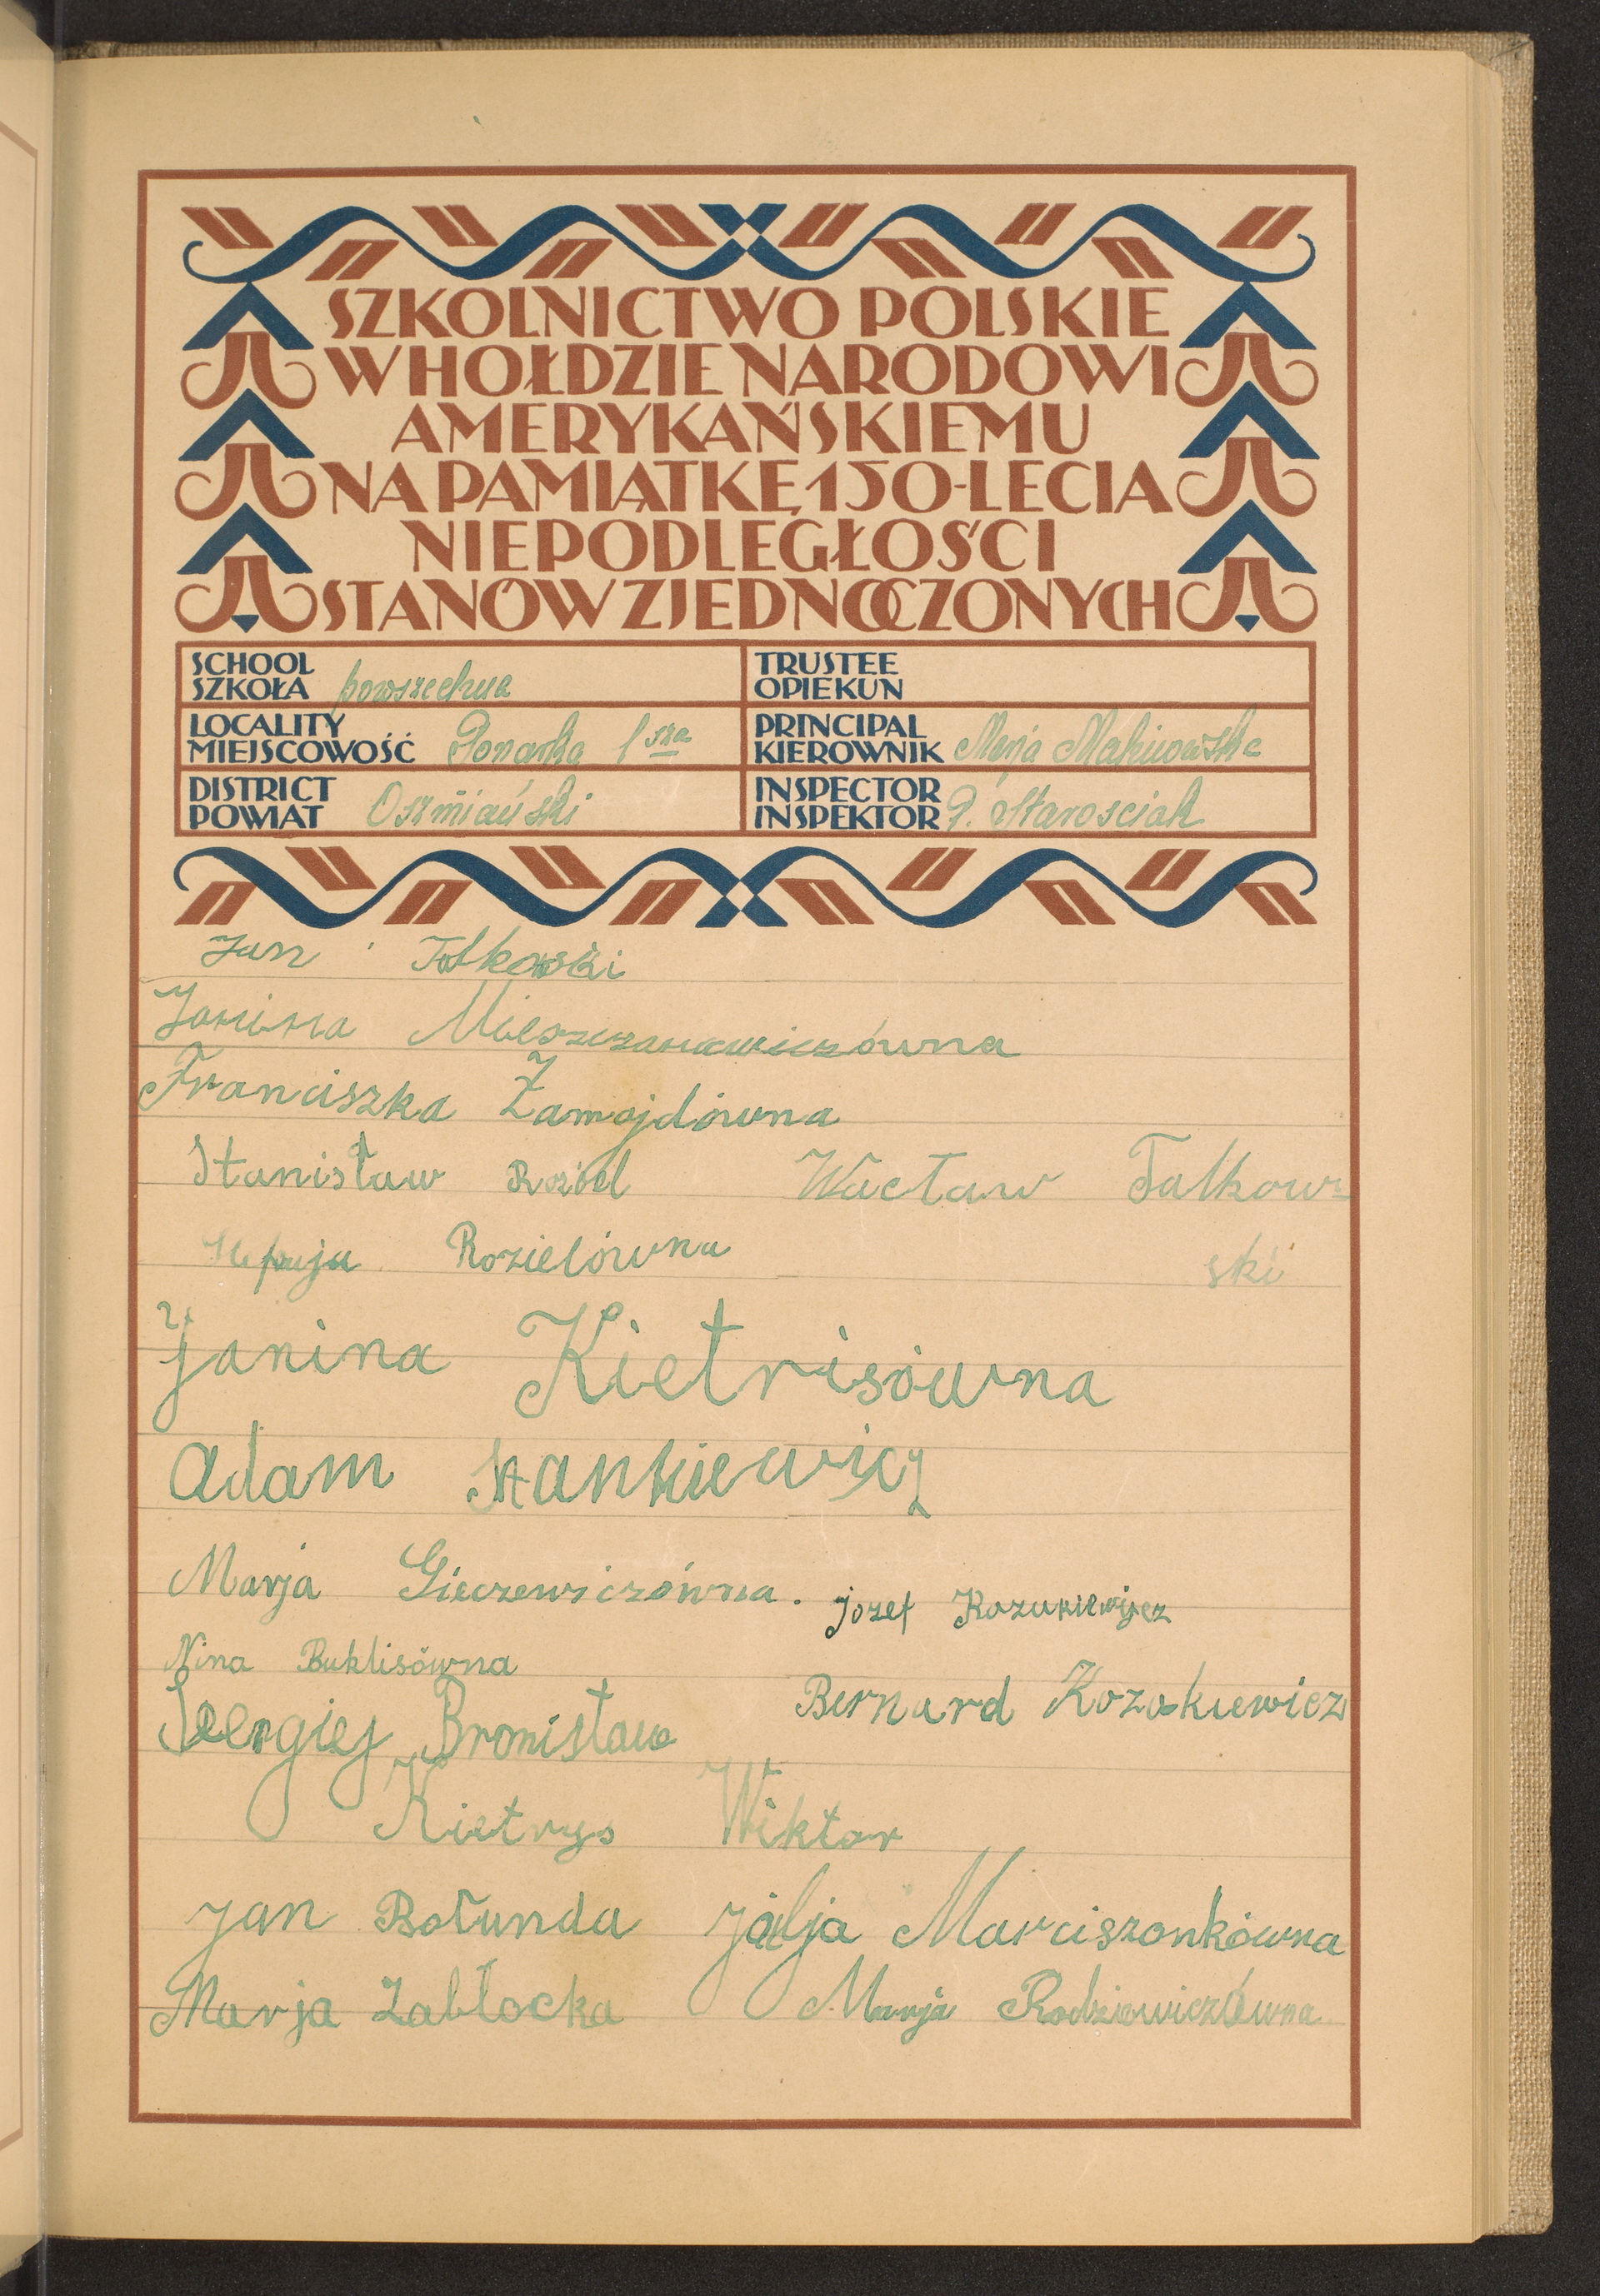 SZKOLNICTWO POLSKIE
W HOŁDZIE NARODOWI
AMERYKAŃSKIEMU
NA PAMIĄTKĘ 150-LECIA
NIEPODLEGŁOŚCI
STANÓW ZJEDNOCZONYCH
SCHOOL
SZKOŁA powszechna
TRUSTEE
OPIEKUN
LOCALITY
MIEJSCOWOŚĆ Ponarka 1sza
PRINCIPAL
KIEROWNIK Marja Makuowska
DISTRICT
POWIAT Oszmiański
INSPECTOR
INSPEKTOR P. Starosciak
Jan Falkowski
Janina Mieszczanowiczówna
Franciszka Żamojdówna
Stanisław Roziel Wacław Falkow-
Rozielówna ski
Janina Kietrisówna
Adam Stankiewicz
Marja Gieczewiczówna. Jozef
Nina Buklisówna
Bernard Kozakiewicz
Seergiej Bronisław
Kietrys Wiktor
Jan Bołunda Julja Marciszonkówna
Marja Zabłocka Marja Rodziewiczówna